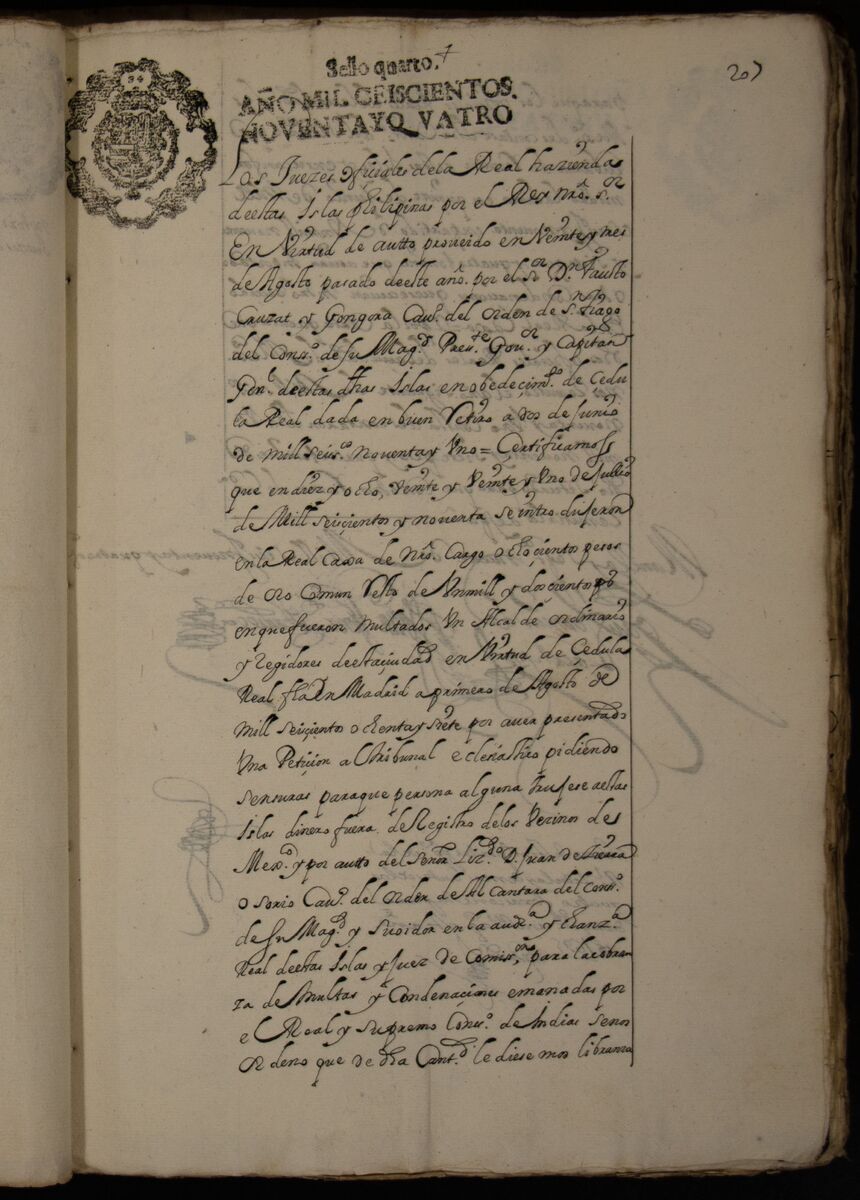 207
94
Sello quarto. +
AÑO MIL CEISCIENTOS.
NOVENTA Y Q VATRO
Los Juezes ofiçiales dela Real hazienda
deestas Islas philipinas por el Rey nrõ. s.or
En Virtud de autto proueido en Veinte y tres
de Agosto pasado deeste añõ. por el s.or D.n Fausto
Cruzat y Gongora Cau.o del orden de s.n tiago
del Cons.o de su Mag.d Pres.te Gou.or y Capitan
Gen.l deestas dhas Islas en obedeçim.to de Cedu
la Real dada en buen Retiro a dos de junio
de mill seis.co noventa y Vno = Certificamos
que en diez y ocho, Veinte y Veinte y Vno de jullio
de Mill seisçientos y noventa se introdujeron
en la Real Caxa de nrõ. Cargo ochoçientos pesos
de oro Comun Resto de Vn mill y dosçientos p.s
en que fueron multados Vn Alcalde ordinario
y Regidores deesta çiudad en Virtud de Çedula
Real fha En Madrid a primero de Agosto de
mill seisçientos ochenta y siete por auer presentado
Vna Petiçion al tribunal eclesiastico pidiendo
sensuras para que persona alguna trujese a estas
Islas dinero fuera de Registro delos Vezinos de
Mex.co y por autto del señor Liz.do D. Juan de Sierra
osorio Cau.o del orden de Alcantara del Cons.o
de su Mag.d y su oidor en la aud.a y chanz.a
Real deestas Islas y Juez de Comiss.on para la cobran
za de Multas y Condenaciones emanadas por
el Real y supremo Cons.o de Indias se nos
ordeno que de dha Cant.d le diesemos libranza